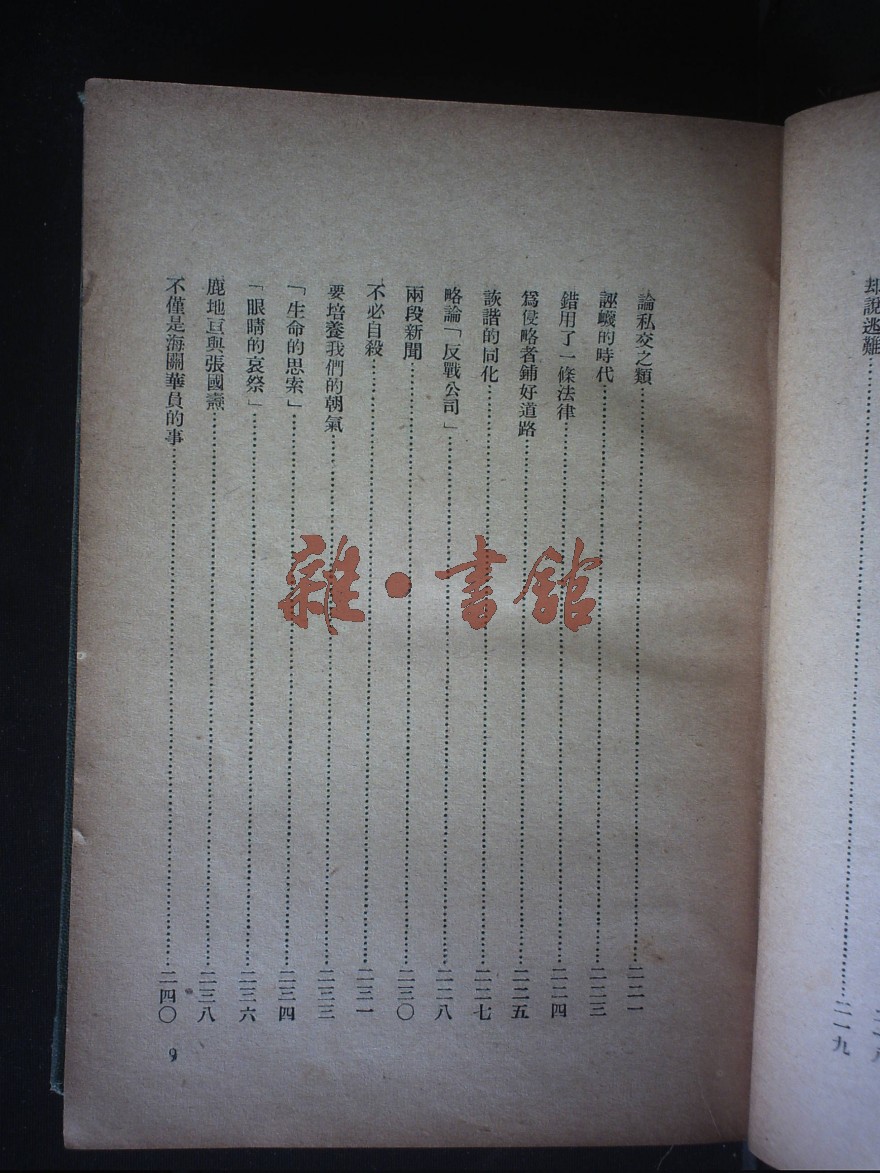 却說逃難……二一九
論私交之類……二二一
誣衊的時代……二二三
錯用了一條法律……二二四
爲侵略者鋪好道路……二二五
詼諧的同化……二二七
略論「反戰公司」……二二八
兩段新聞……二三〇
不必自殺……二三一
要培養我們的朝氣……二三三
「生命的思索」……二三四
「眼睛的哀祭」……二三六
鹿地亘與張國燾……二三八
不僅是海關華員的事……二四〇
9
雜·書館